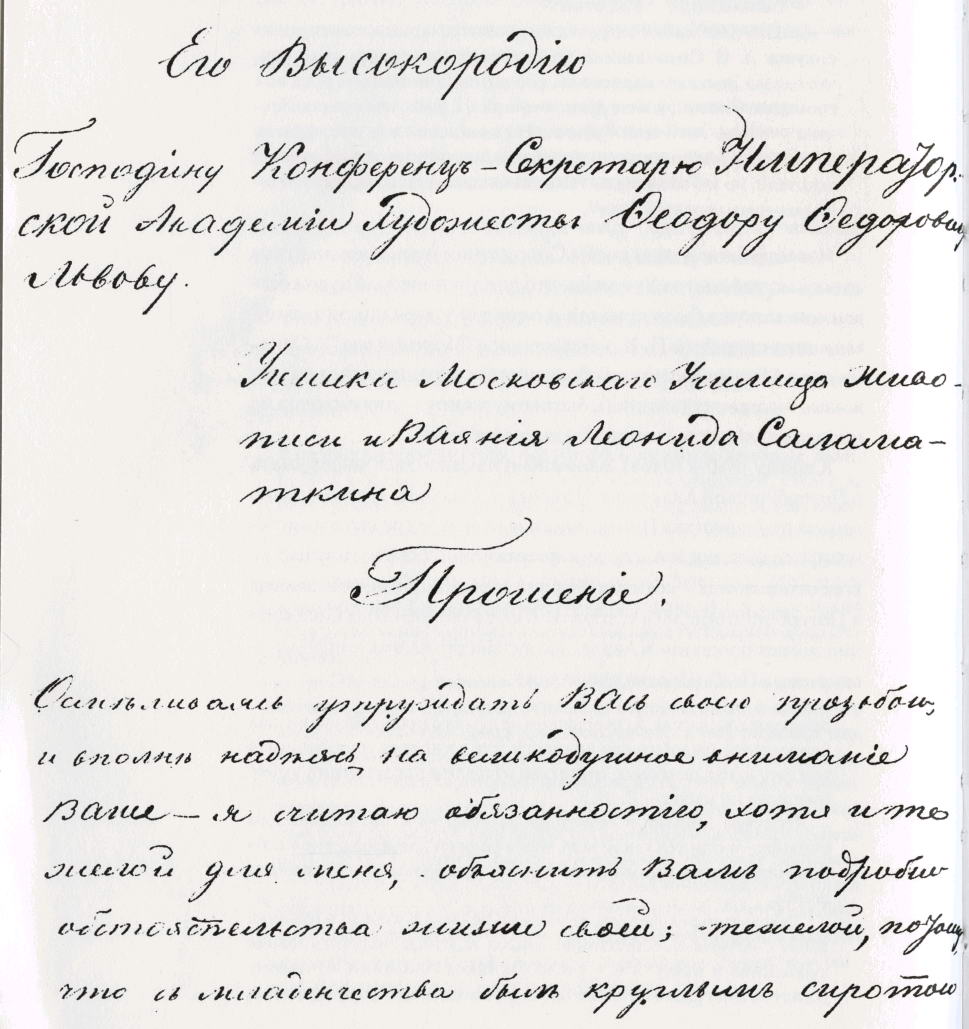 Его Высокородію
Господину Конференцъ-Секретарю Император-
ской Академіи Художествъ Ѳеодору Ѳедорович
Львову.
Ученика Московскаго Училища Живо-
писи и Ваянія Леонида Салама-
ткина
Прошеніе.
Осмѣливаясь утруждать Васъ своею прозьбою,
и вполнѣ надѣясь на великодушное вниманіе
Ваше — я считаю обязанностію, хотя и тя
желой для меня, объяснить Вамъ подробно
обстоятельства жизни своей; тежелой, потому,
что съ младенчества былъ круглымъ сиротою